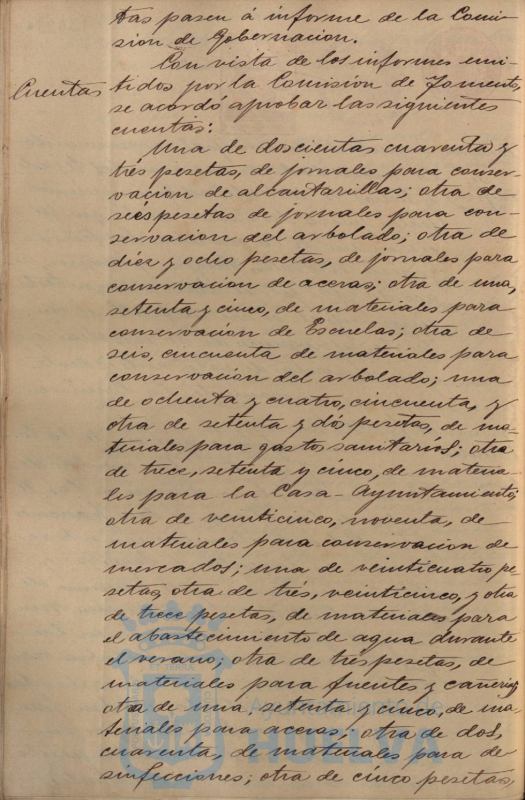 tas pasen á informe de la Comi-
sion de Gobernacion.
Con vista de los informes emi-
Cuentas tidos por la Comision de Fomento,
se acordó aprobar las siguientes
cuentas:
Una de doscientas cuarenta y
trés pesetas, de jornales para conser-
vacion de alcantarillas; otra de
seis pesetas de jornales para con-
servacion del arbolado; otra de
diez y ocho pesetas, de jornales para
conservacion de aceras; otra de una,
setenta y cinco, de materiales para
conservación de Escuelas; otra de
seis, cincuenta de materiales para
conservacion del arbolado; una
de ochenta y cuatro, cincuenta, y
otra de setenta y dós pesetas, de ma-
teriales para gastos sanitarios; otra
de trece, setenta y cinco, de materia-
les para la Casa-Ayuntamiento;
otra de veinticinco, noventa, de
materiales para conservacion de
mercados; una de veinticuatro pe-
setas, otra de trés, veinticinco, y otra
de trece pesetas, de materiales para
el abastecimiento de agua durante
el verano; otra de tres pesetas, de
materiales para fuentes y cañerias;
otra de una, setenta y cinco, de ma-
teriales para aceras; otra de dos,
cuarenta, de materiales para de
sinfecciones; otra de cinco pesetas,